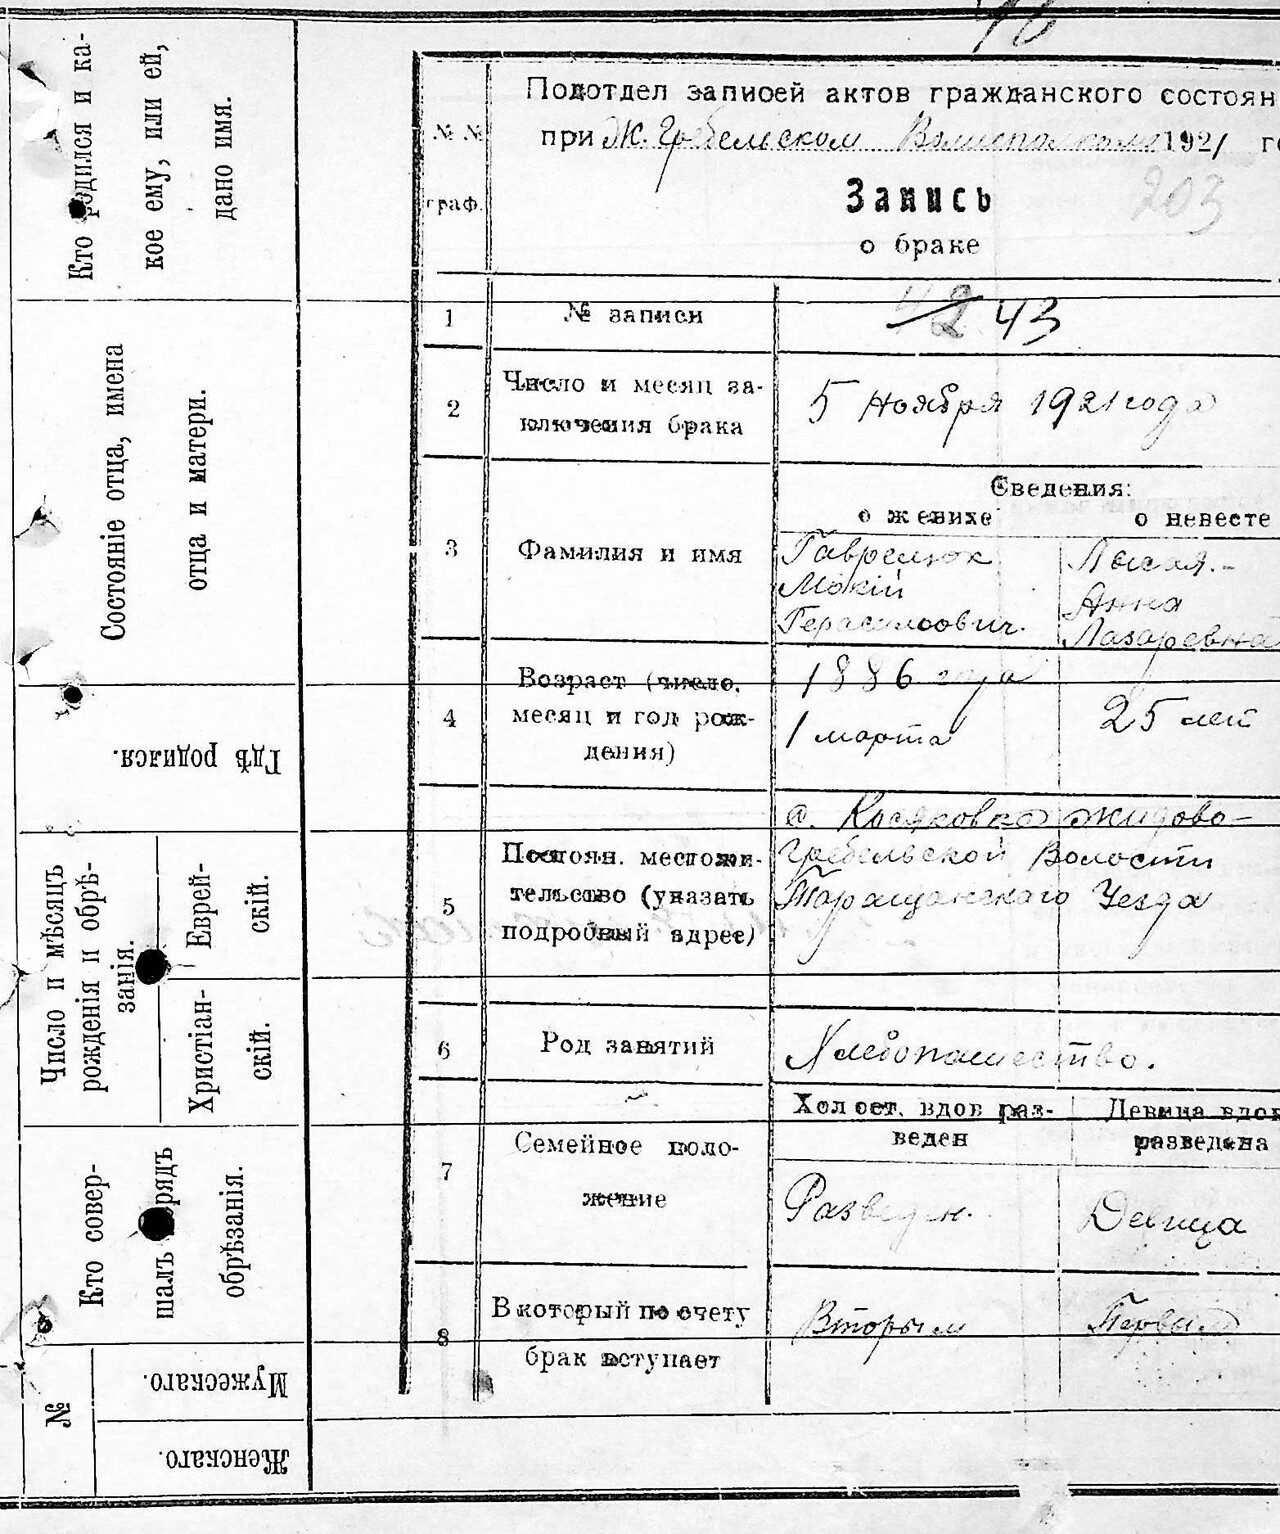 Кто родился и ка-
кое ему, или ей,
дано имя.
Состояніе отца, имена
отца и матери.
Гдѣ родился.
Число и мѣсяцъ
рожденія и обрѣ-
занія.
Еврей-
скій.
Христіан-
скій.
Кто совер-
шалъ обрядъ
обрѣзанія.
№
Мужескаго.
Женскаго.
Подотдел записей актов гражданского состоян
при Ж. Гребельском 1921 го
№ №
граф.
Запись
203
о браке
1
№ записи
42 43
2
Число и месяц за-
ключения брака
5 Ноября 1921 года
Сведения:
о женихе
о невесте
3
Фамилия и имя
Гаврелюк
Мокій
Герасимович.
Лысая.-
Анна
Лазаревна
4
Возраст (число,
месяц и год рож-
дения)
1886 года
1 марта
25 лет
5
Постоян. местожи-
тельство (указать
подробный адрес)
с. Косяковка Жидово-
Гребельской Волости
Таращанского Уезда
6
Род занятий
Хлебопашество.
7
Семейное поло-
жение
Холост. вдов раз-
веден
Девица вдов
разведена
Разведен.
Девица
8
В который по счету
брак вступает
Вторым
Первым